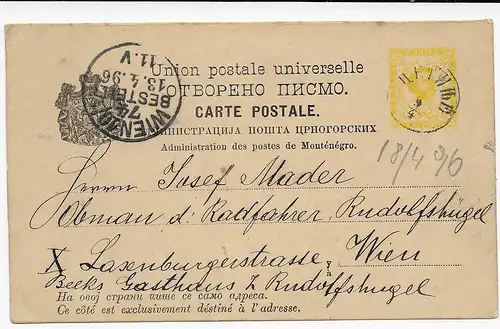 Union postale universelle
ОТВОРЕНО ПИСМО.
CARTE POSTALE.
АДМИНИСТРАЦИЈА ПОШТА ЦРНОГОРСКИХ
Administration des postes de Monténégro.
WIEN
BESTELLT
13.4.96
11.V
ЦЕТИЊЕ
18/4 96
Herrn Josef Mader
Obman d. Radfahrer, Rudolfshügel
X Laxenburgerstrasse, Wien
Becks Gasthaus z Rudolfshügel
На овој страни пише се само адреса.
Ce côté est exclusivement déstiné à l'adresse.